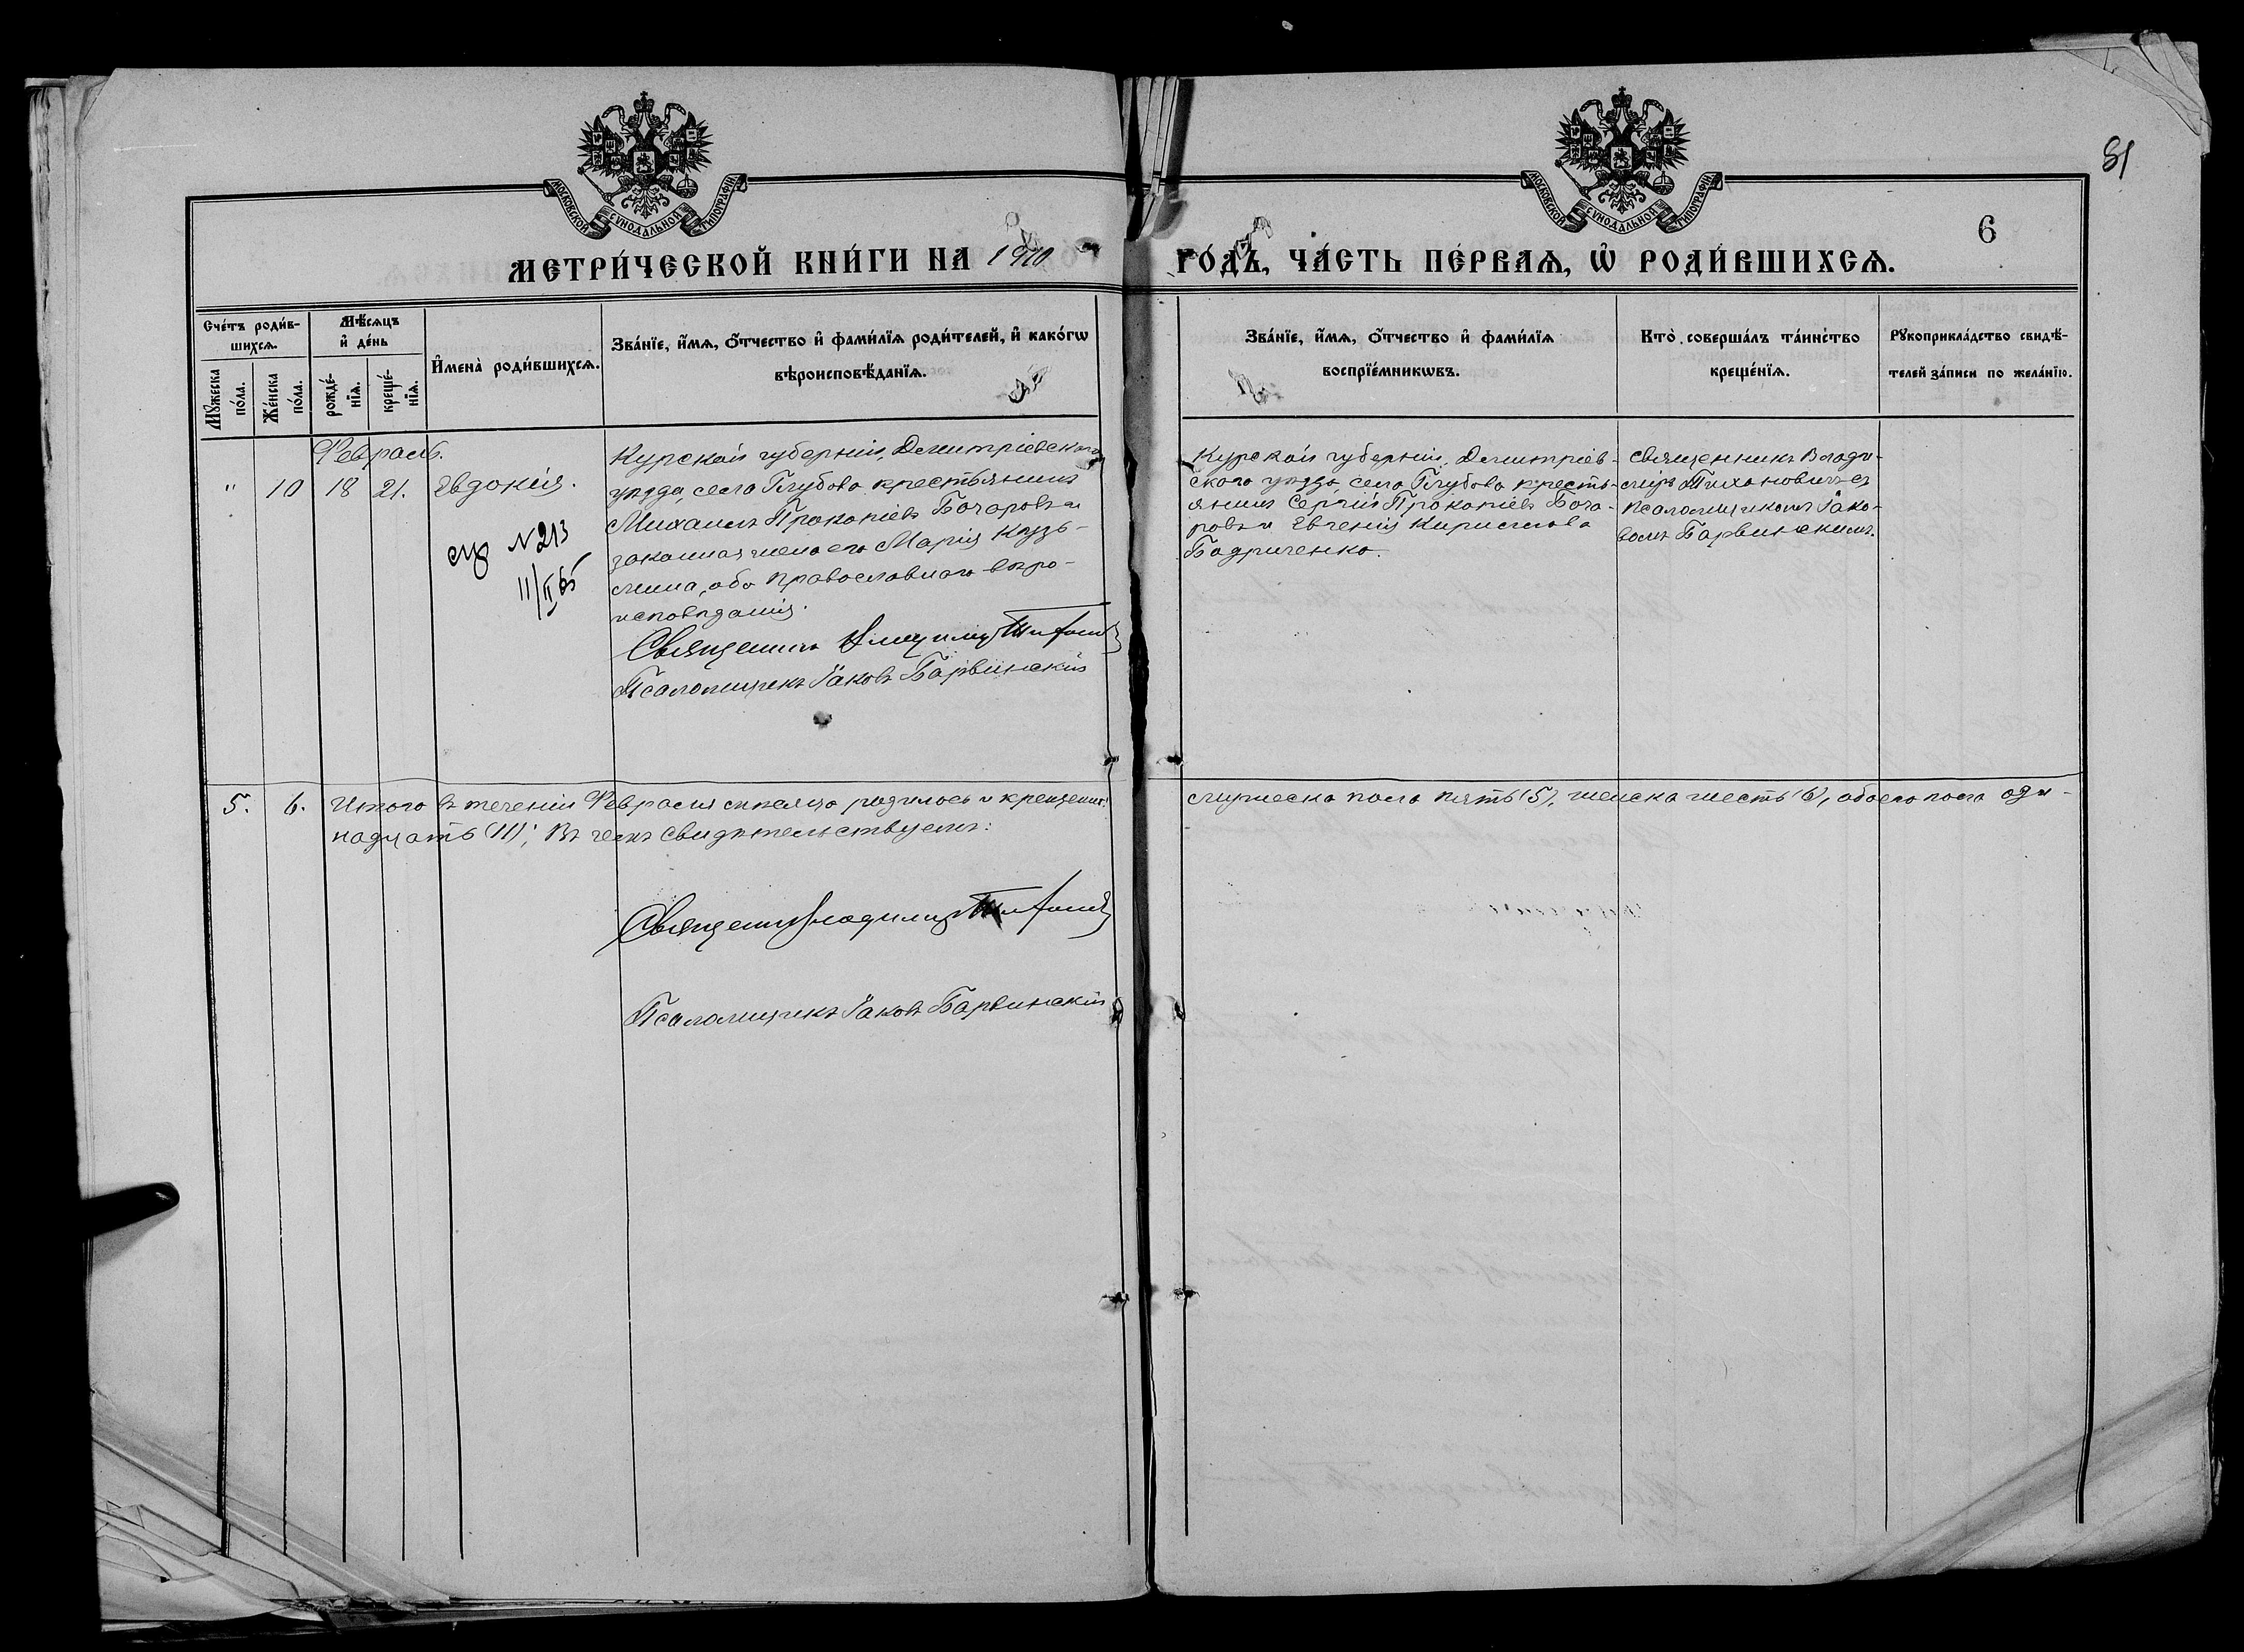 81
6
МОСКОВСКОЙ СѴНОДАЛЬНОЙ ТИПОГРАФІИ
МОСКОВСКОЙ СѴНОДАЛЬНОЙ ТИПОГРАФІИ
МЕТРИ́ЧЕСКОЙ КНИ́ГИ НА 1910 ГО́ДЪ, ЧА́СТЬ ПЕ́РВАѦ, Ѡ҆ РОДИ́ВШИХСѦ.
Сче́тъ роди́в-
шихсѧ.
Мꙋ́жеска по́ла.
Же́нска по́ла.
Мѣ́сѧцъ и҆ де́нь
рожде́-
нїѧ.
креще́-
нїѧ.
И҆мена̀ роди́вшихсѧ.
Зва́нїе, и҆́мѧ, ѻ҆́тчество и҆ фами́лїѧ роди́телей, и҆ како́гѡ
вѣроисповѣ́данїѧ.
Зва́нїе, и҆́мѧ, ѻ҆́тчество и҆ фами́лїѧ
воспрїе́мникѡвъ.
Кто̀ соверша́лъ та́инство
креще́нїѧ.
Рꙋкоприкла́дство свидѣ́-
телей за́писи по жела́нїю.
Февраль.
" 10 18 21. Евдокія.
N 213
11/II 65
Курской губерніи, Дмитріевскаго
уѣзда, села Глубова крестьянинъ
Михаилъ Прокопіевъ Бочаровъ и
законная жена его Марія Кузь-
мина, оба православнаго вѣро-
исповѣданія.
Священникъ Владиміръ Тихоновичъ
Псаломщикъ Іаковъ Барвинскій
Курской губерніи, Дмитріев-
скаго уѣзда, села Глубова кресть-
янинъ Сергій Прокопіевъ Боча-
ровъ и Евгенія Кириллова
Бодриченко.
Священникъ Влади-
міръ Тихоновичъ съ
псаломщикомъ Іако-
вомъ Барвинскимъ.
5. 6. Итого въ теченіи Февраля мѣсяца родилось и крещено: мужеска пола пять (5), женска шесть (6), обоего пола оди-
надцать (11); Въ чемъ свидѣтельствуемъ:
Священникъ Владиміръ Тихоновичъ
Псаломщикъ Іаковъ Барвинскій